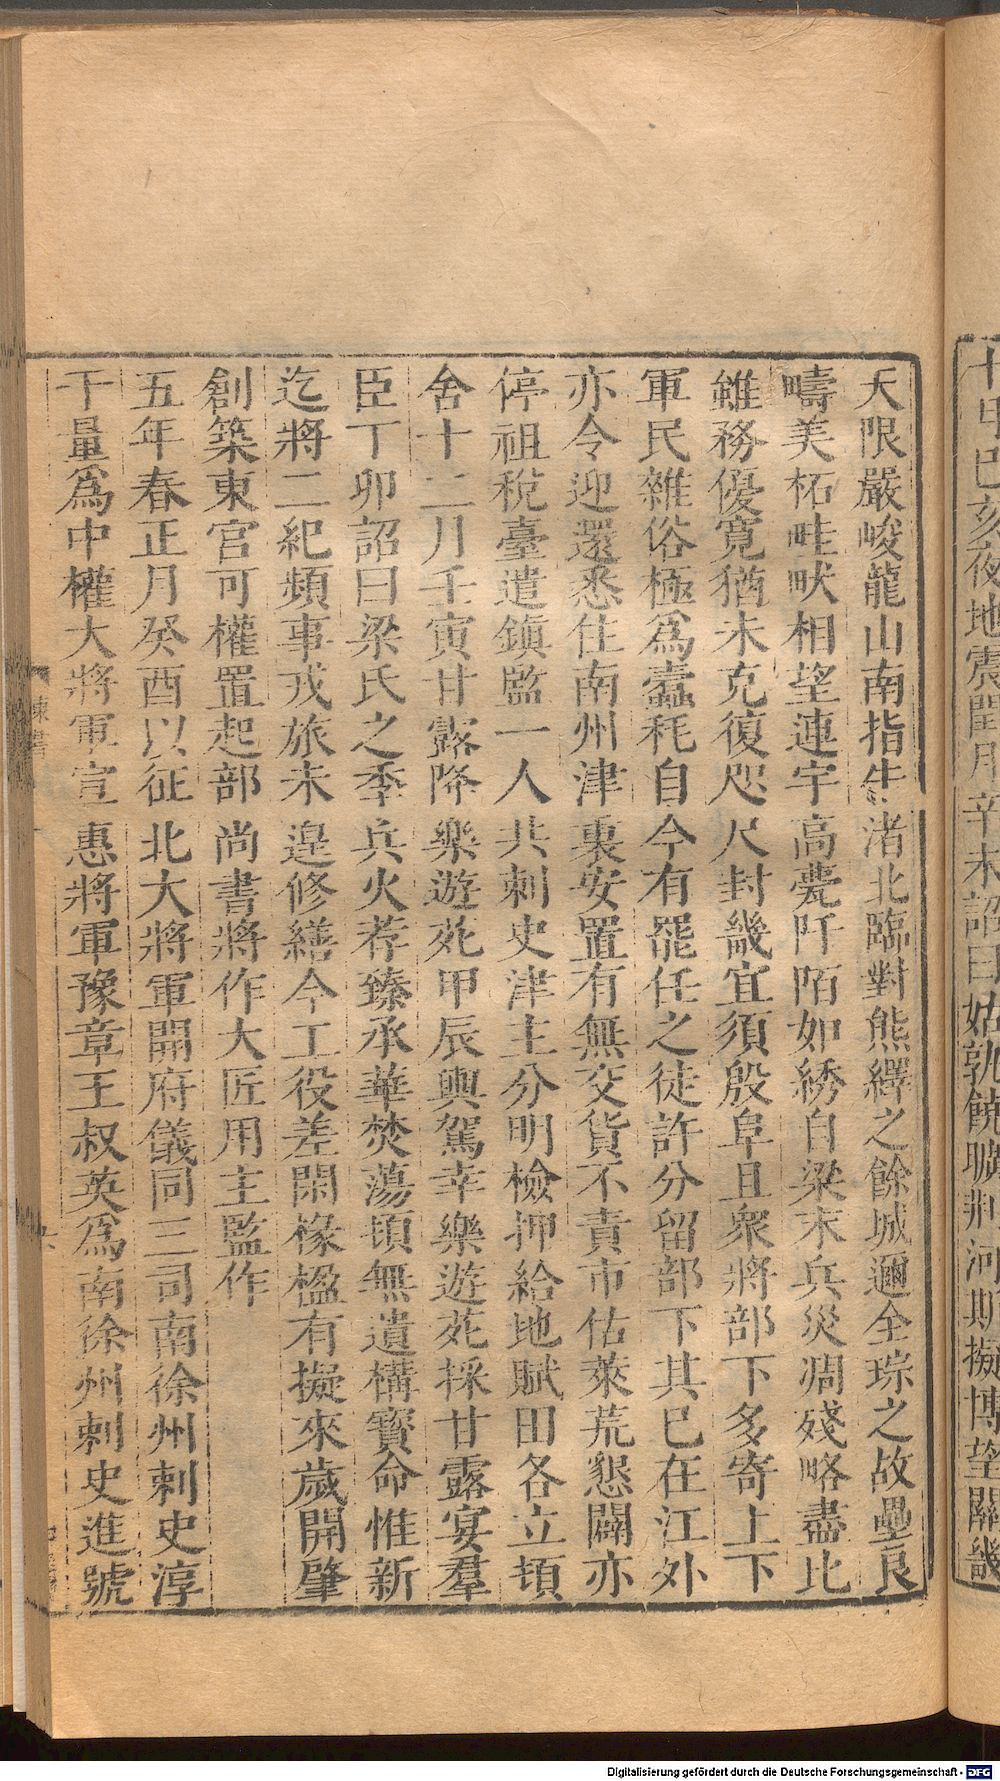 十月己亥夜地震閏月辛未詔曰姑孰饒曠荆河斯擬博望關畿
天限嚴峻龍山南指牛渚北臨對熊繹之餘城邇全琮之故壘良
疇美柘畦畎相望連宇高甍阡陌如綉自梁末兵災凋殘略盡比
雖務優寬猶未克復咫尺封畿宜須殷阜且衆將部下多寄上下
軍民雜俗極爲蠹秏自今有罷任之徒許分留部下其已在江外
亦令迎還悉住南州津裏安置有無交貨不責市估萊荒懇闢亦
停祖稅臺遣鎮監一人共刺史津主分明檢押給地賦田各立頓
舍十二月壬寅甘露降樂遊苑甲辰輿駕幸樂遊苑採甘露宴羣
臣丁卯詔曰梁氏之季兵火荐臻承華焚蕩頓無遺構寳命惟新
迄將二紀頻事戎旅未遑修繕今工役差閑椽楹有擬來歲開肇
創築東宮可權置起部尚書將作大匠用主監作
五年春正月癸酉以征北大將軍開府儀同三司南徐州刺史淳
于量爲中權大將軍宣惠將軍豫章王叔英爲南徐州刺史進號
Digitalisierung gefördert durch die Deutsche Forschungsgemeinschaft - DFG